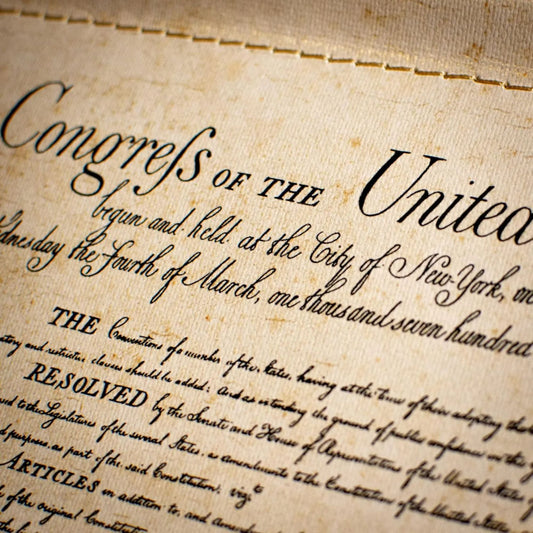 Congreſs OF THE United
begun and held at the City of New-York, on
dnesday the fourth of March, one thousand seven hundred
THE Conventions of a number of the States, having at the time of their adopting the
atory and restrictive clauses should be added: And as extending the ground of public confidence in the
RESOLVED by the Senate and House of Representatives of the United States
sed to the Legislatures of the several States, as amendments to the Constitution of the United States
d purposes, as part of the said Constitution; vizt
ARTICLES in addition to, and amend
of the original Constitution